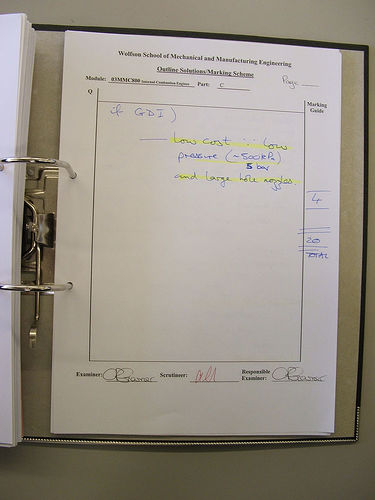 Wolfson School of Mechanical and Manufacturing Engineering
Outline Solutions/Marking Scheme
Module: 03MMC800 Internal Combustion Engines Part: C Page
Q
Marking Guide
if GDI )
— Low cost ∴ Low
pressure (~500kPa)
5 bar
and large hole nozzles.
4
20
TOTAL
Examiner: Scrutineer: Responsible Examiner: